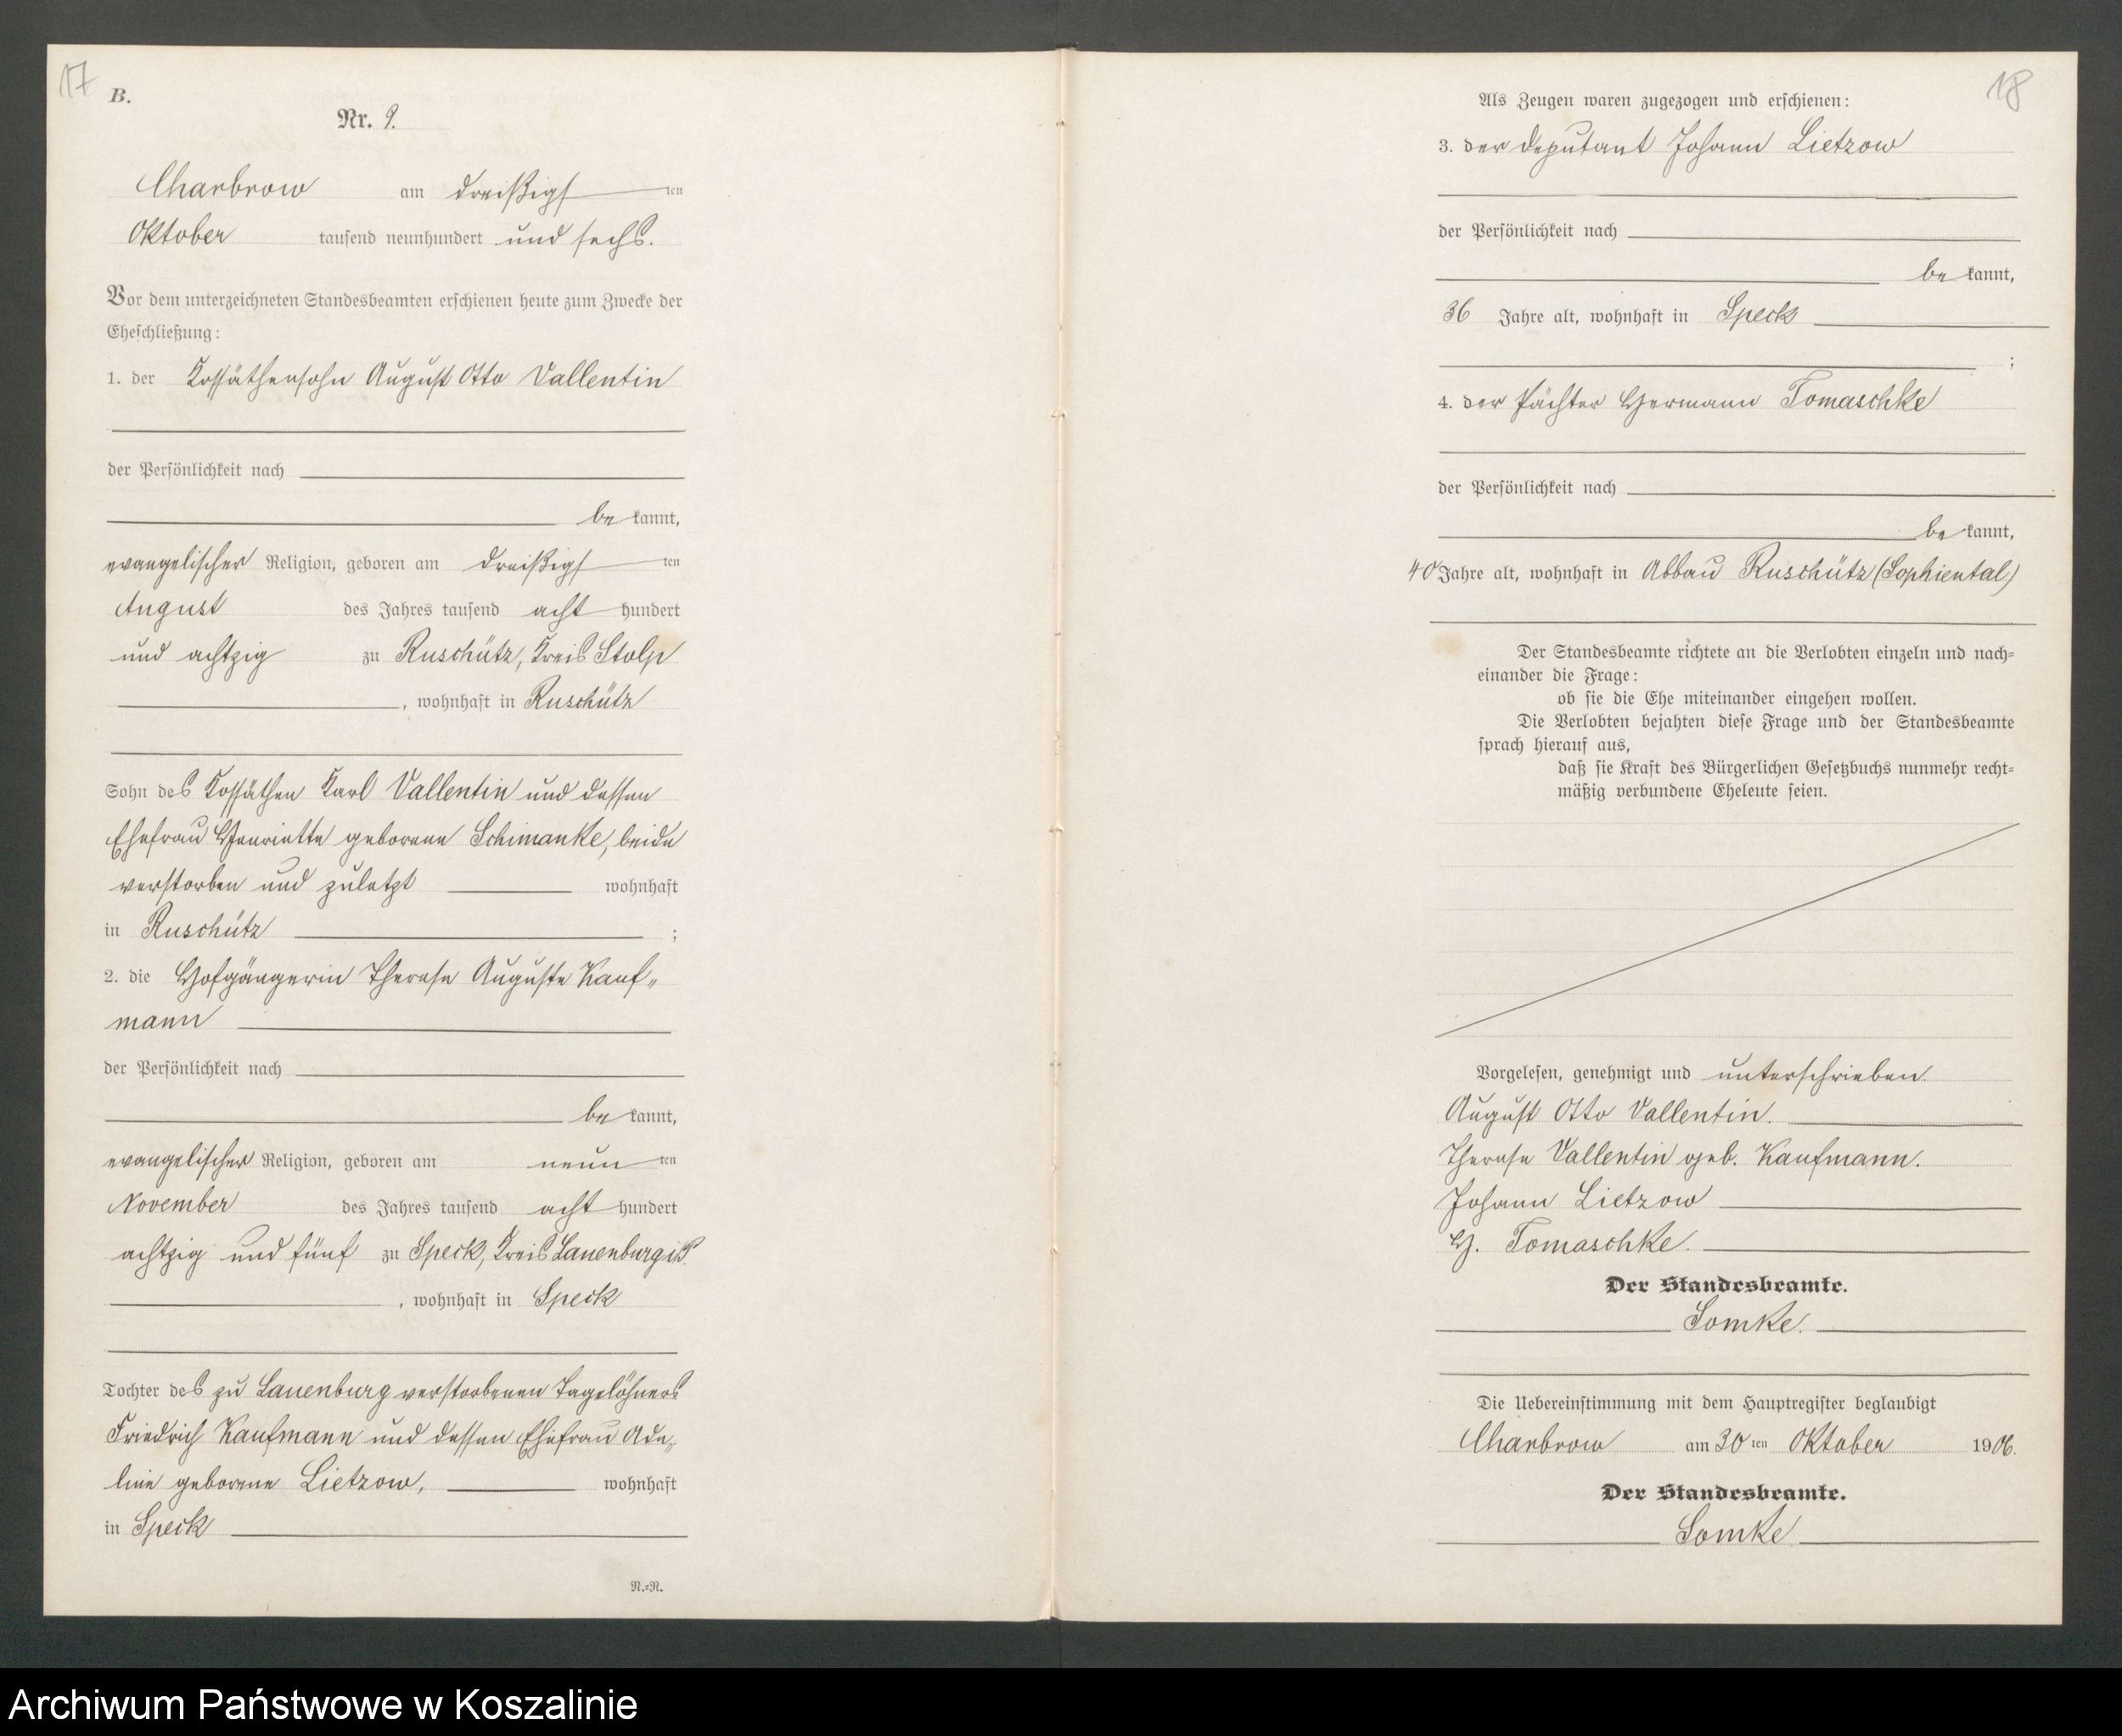 17
B.
Nr. 9.
Charbrow am dreißigsten
Oktober tausend neunhundert und sechs.
Vor dem unterzeichneten Standesbeamten erschienen heute zum Zwecke der
Eheschließung:
1. der Kossäthensohn August Otto Vallentin
der Persönlichkeit nach
be kannt,
evangelischer Religion, geboren am dreißigsten
August des Jahres tausend acht hundert
und achtzig zu Ruschütz, Kreis Stolp
, wohnhaft in Ruschütz
Sohn des Kossäthen Karl Vallentin und dessen
Ehefrau Henriette geborene Schimanke, beide
verstorben und zuletzt wohnhaft
in Ruschütz ;
2. die Hofgängerin Therese Auguste Kauf„
mann
der Persönlichkeit nach
be kannt,
evangelischer Religion, geboren am neunten
November des Jahres tausend acht hundert
achtzig und fünf zu Speck, Kreis Lauenburg i/P.
, wohnhaft in Speck
Tochter des zu Lauenburg verstorbenen Tagelöhners
Friedrich Kaufmann und dessen Ehefrau Ade„
line geborene Lietzow, wohnhaft
in Speck
N.=R.
18
Als Zeugen waren zugezogen und erschienen:
3. der Deputant Johann Lietzow
der Persönlichkeit nach
be kannt,
36 Jahre alt, wohnhaft in Speck
;
4. der Pächter Hermann Tomaschke
der Persönlichkeit nach
be kannt,
40 Jahre alt, wohnhaft in Abbau Ruschütz (Sophiental)
Der Standesbeamte richtete an die Verlobten einzeln und nach=
einander die Frage:
ob sie die Ehe miteinander eingehen wollen.
Die Verlobten bejahten diese Frage und der Standesbeamte
sprach hierauf aus,
daß sie Kraft des Bürgerlichen Gesetzbuchs nunmehr recht=
mäßig verbundene Eheleute seien.
Vorgelesen, genehmigt und unterschrieben.
August Otto Vallentin.
Therese Vallentin geb. Kaufmann.
Johann Lietzow
H. Tomaschke.
Der Standesbeamte.
Somke.
Die Uebereinstimmung mit dem Hauptregister beglaubigt
Charbrow am 30ten Oktober 1906.
Der Standesbeamte.
Somke
Archiwum Państwowe w Koszalinie